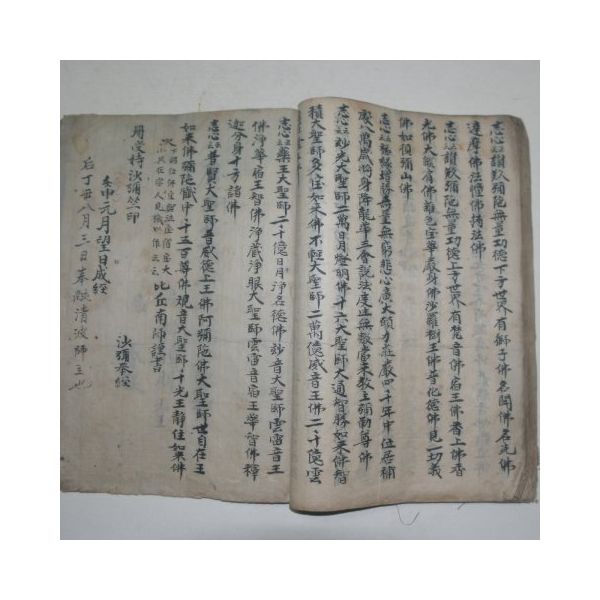 志心讃歎彌陀無量功德下方世界有獅子佛名聞佛名光佛
達摩佛法幢佛持法佛
志心讃歎彌陀無量功德上方世界有梵音佛宿王佛香上佛香
光佛大焰肩佛雜色宝華嚴身佛沙羅樹王佛宝花德佛見一切義
佛如須彌山佛
志心緣增勝無量無窮悲心廣大願力莊嚴四十年中位居補
處八萬歲將身降龍華三會說法度迷無數當來敎主彌勒尊佛
志心妙光大聖師二萬日月燈明佛十六大聖師大通智勝如來佛智
積大聖師多宝如來佛不輕大聖師二萬億威音王佛二千億雲
志心藥王大聖師二十億日月淨名德佛妙音大聖師雲雷音王
佛淨華宿王智佛淨藏淨眼大聖師雲雷音宿王華智佛釋
迦分身十方諸佛
志心普賢大聖師宝威德上王佛阿彌陀佛大聖師世自在王
如來佛彌陀藏中十三百尊佛觀音大聖師千光王靜住如來佛
比丘南師謹書
冊受持沙彌
壬申元月望日成經
沙彌奉經
后丁丑八月三日奉 清波師主也